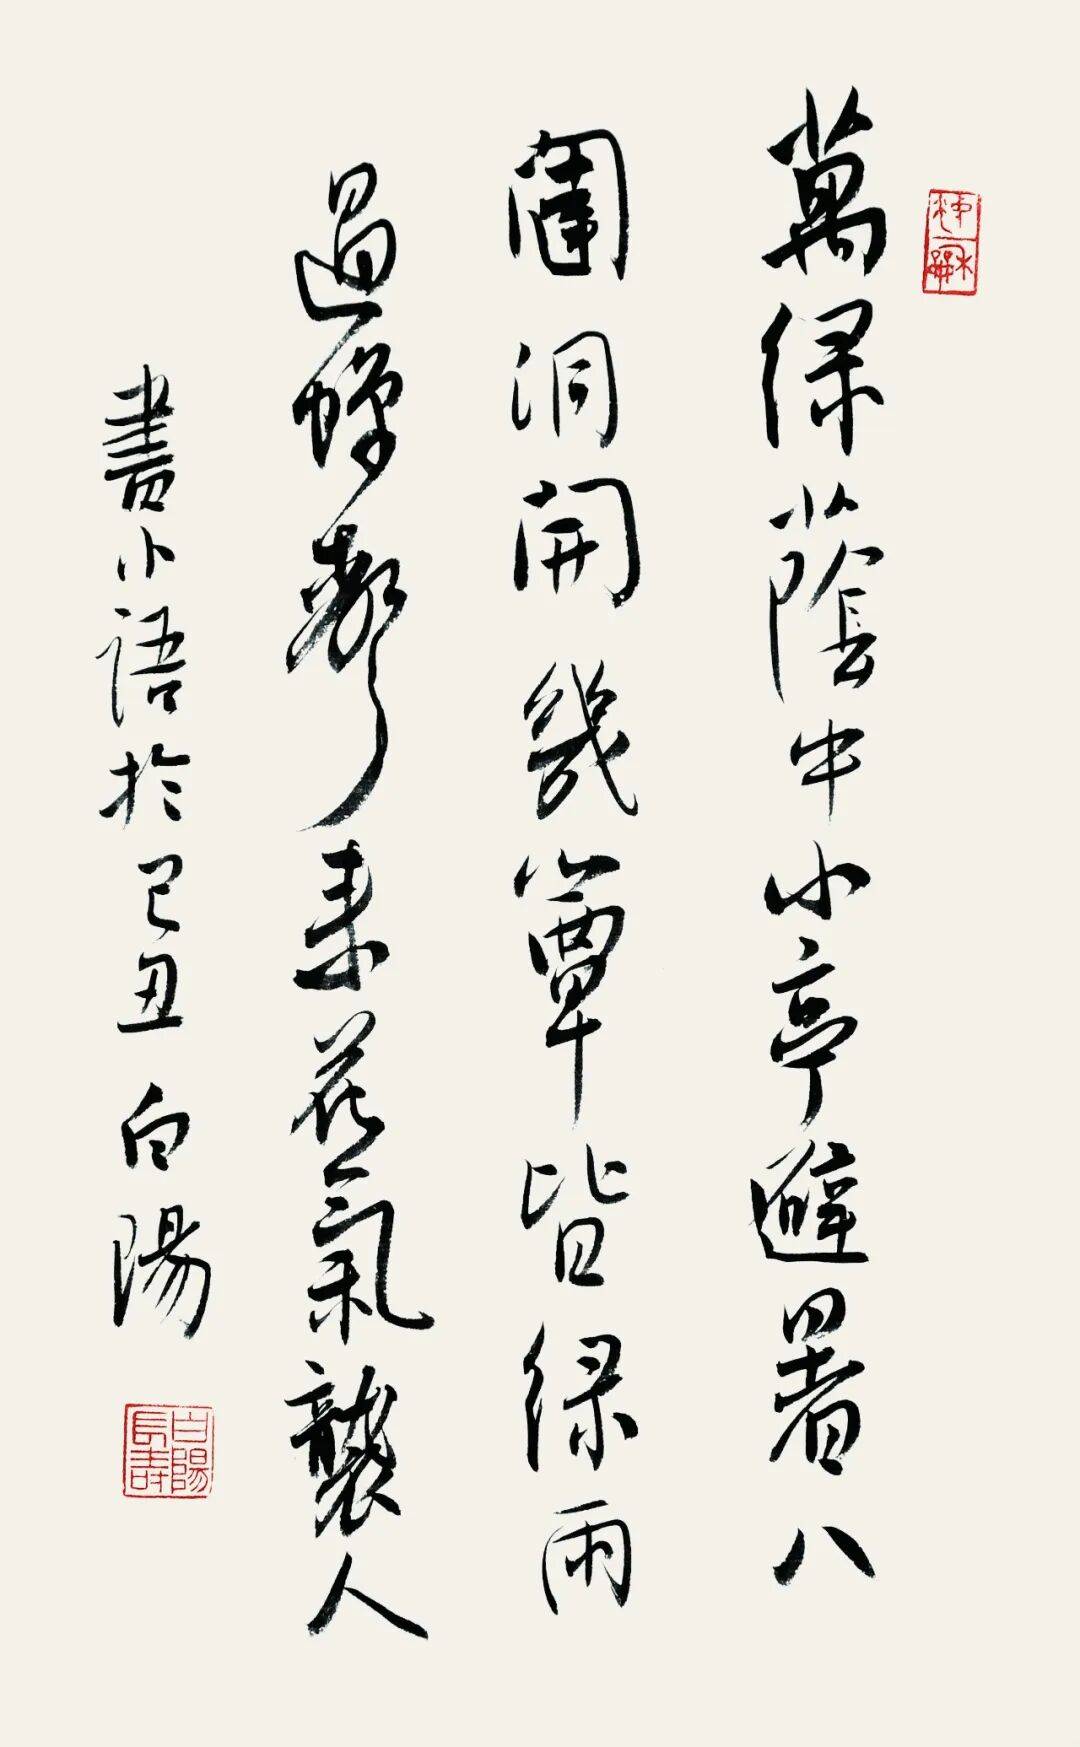 萬綠蔭中小亭避暑八
闥洞開幾簟皆綠雨
過蟬聲來花氣襲人
書小語於己丑白陽
白陽長壽